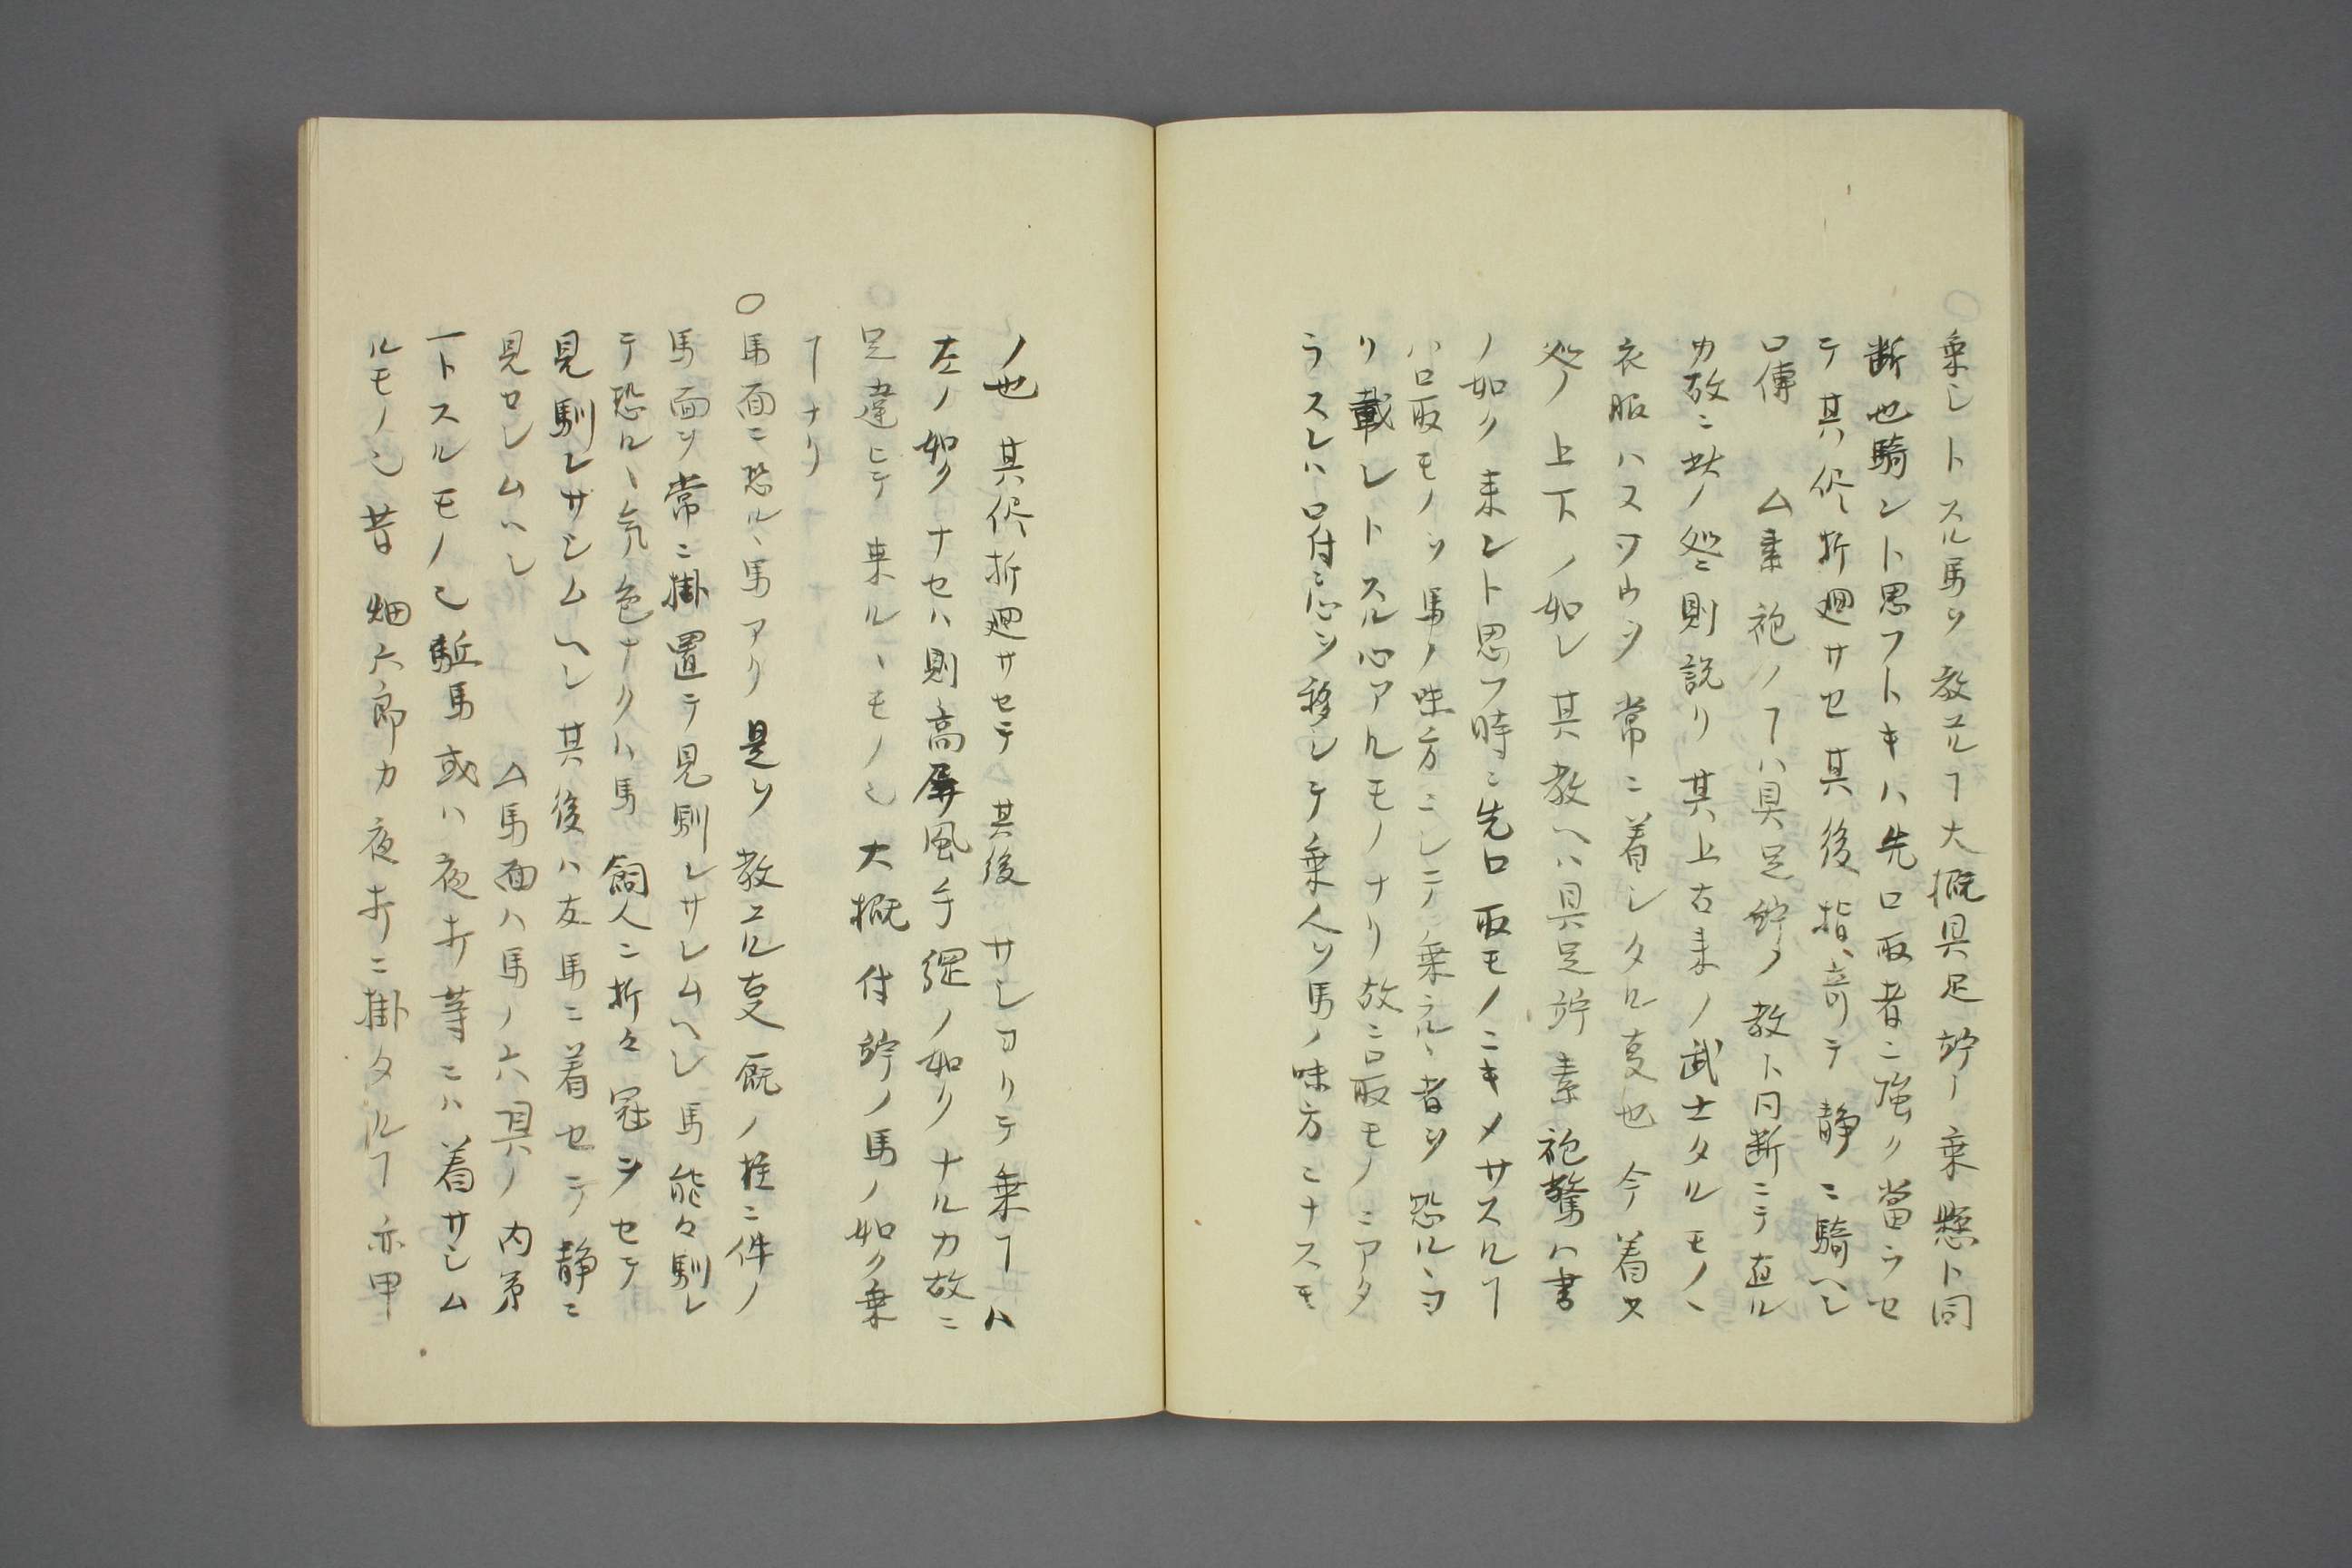 乗ントスル馬ヲ教エルヿ大概具足竛ト乗懸ト同
断也騎ント思フトキハ先口取者ニ強ク當ラセ
テ其侭折廻サセ其後指寄テ静ニ騎ヘシ
口傳 △素袍ノヿハ具足竛ノ教ト同断ニテ直ル
カ故ニ状ノ処ニ則説リ其上古来ノ武士タルモノヽ
衣服ハスワウヲ常ニ着シタル叓也今着ス
処ノ上下ノ如シ其教ヘハ具足竛素袍驚ハ書
ノ如ク来ント思フ時ニ先口取モノニキメサスルヿ
ハ口取モノヲ馬ノ味方ニシテ乗ラルヽ者ヲ恐ルヽヨ
リ載レトスル心アルモノナリ故ニ口取モノニアタ
ラスレハ口付ニ心ヲ移シテ乗人ヲ馬ノ味方ニナスモ
ノ也其侭折廻サセテ其後サシヨリテ乗ヿハ
左ノ如クナセハ則高屏風手縄ノ如クナルカ故ニ
足違ヒテ乗ルヽモノ也大概付竛ノ馬ノ如ク乗
ヿナリ
○馬面ニ恐ルヽ馬アリ是ヲ教エル叓厩ノ柱ニ件ノ
馬面ヲ常ニ掛置テ見馴レサレムヘシ馬能々馴レ
テ恐ルヽ気色ナクハ馬飼人ニ折々冠ヲセテ
見馴レサシムヘシ其後ハ友馬ニ着セテ静ニ
見セシムヘシ △馬面ハ馬ノ六具ノ内第
一トスルモノ也駈馬或ハ夜討等ニハ着サシム
ルモノ也昔畑六郎カ夜討ニ掛タルヿ亦甲